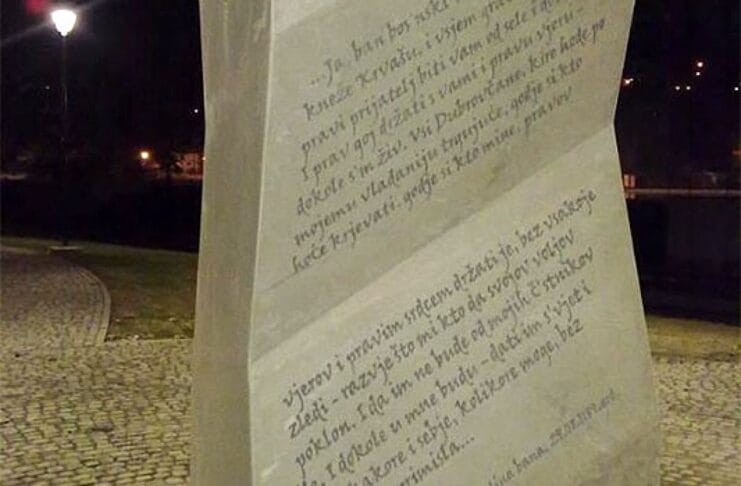 ...Ja, ban bos'nski
kneže Krvašu, i vsjem gra
pravi prijatelj biti vam od sele i do
I prav goj držati s vami i pravu vjeru -
dokole s'm živ. Vsi Dubrovčane, kire hode po
mojemu vladaniju trgujuće, godje si kto
hoće krjevati. godje si kto mine, pravov
vjerov i pravim srdcem držati je, bez vsakoje
zledi - razvje što mi kto da svojov voljov
poklon. I da im ne bude od mojih č'stnikov
I dokole u mne budu - dati im s'vjet i
kakore i sebje, kolikore moge, bez
primisla...
bana, 29.08.1189.god.